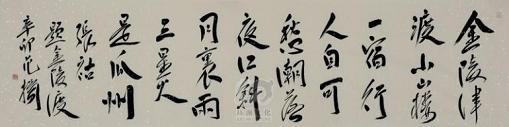 金陵津
渡小山樓
一宿行
人自可
愁潮落
夜江斜
月裏兩
三星火
是瓜州
張祜
題金陵渡
辛卯